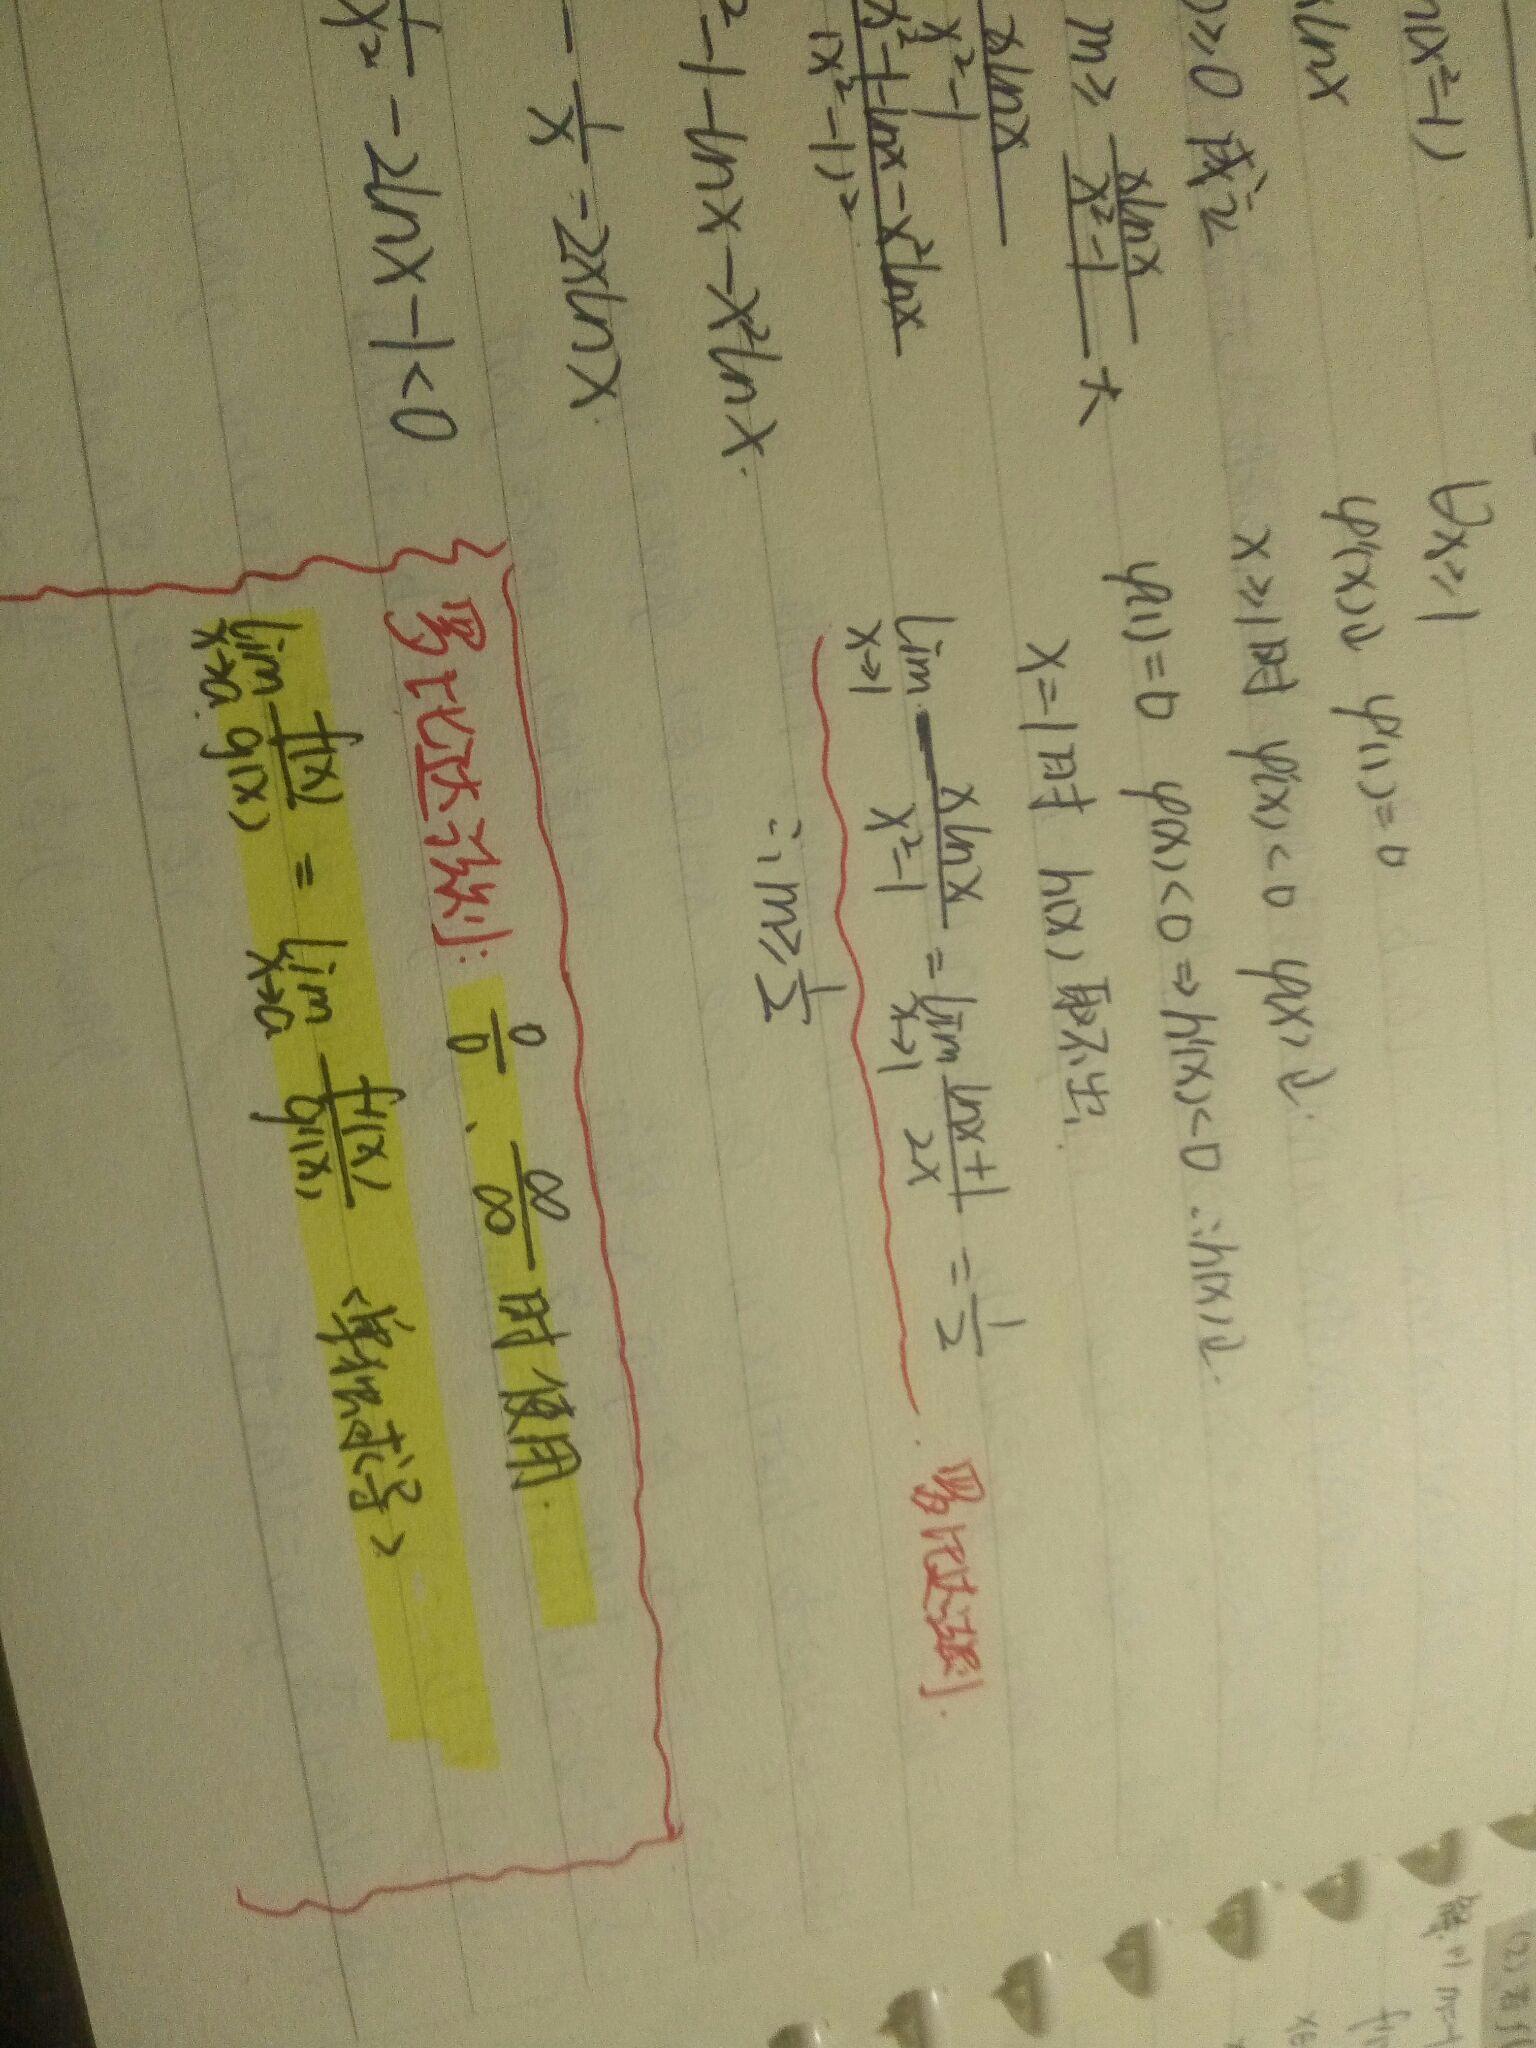 m(x²-1)
xlnx
≥0 成立
m ≥ xlnx / x²-1
xlnx
x²-1
x²-1-lnx-x²lnx
(x²-1)²
²-1-lnx-x²lnx.
- 1/x - 2xlnx.
1/x² - 2lnx-1<0
∀x≥1
φ'(x)↓ φ'(1)=0
x≥1时 φ'(x)<0 φ(x)↓.
φ(1)=0 φ(x)<0⇒h'(x)<0∴h(x)↓.
x=1时 h(x)取不出.
lim x→1 xlnx / x²-1 = lim x→1 lnx+1 / 2x = 1/2
罗比达法则.
∴m≥1/2
罗比达法则: 0/0、∞/∞ 时使用.
lim x→a f(x)/g(x) = lim x→a f'(x)/g'(x) <导完再算>
(2)若f(
解:(1) m=1